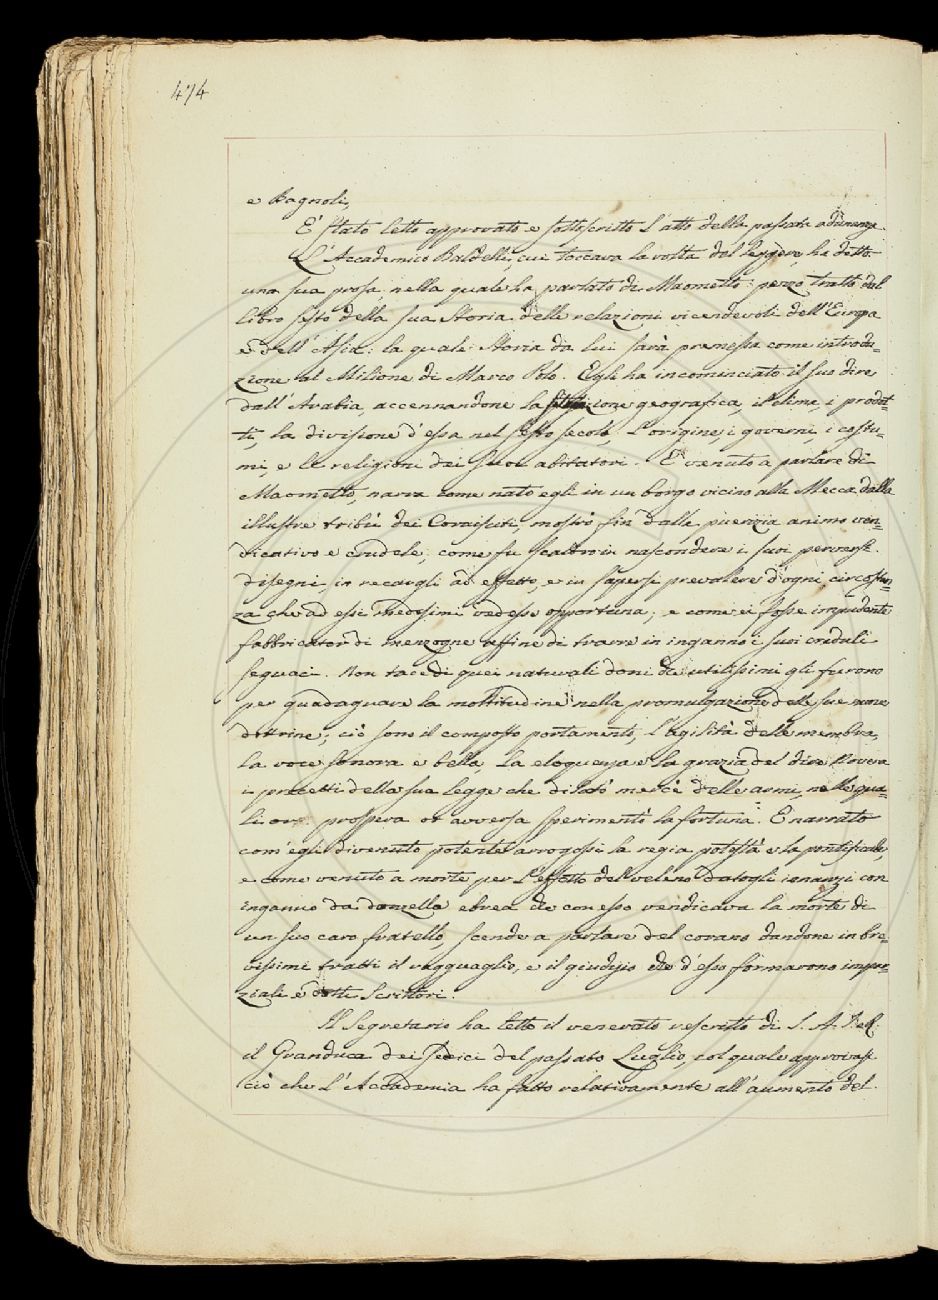 474
e Bagnoli,
E' stato letto approvato e sottoscritto l'atto della passata adunanza.
L'Accademico Baldelli, cui toccava la volta del leggere, ha detto
una sua prosa, nella quale ha parlato di Maometto: pezzo tratto dal
libro sesto della sua Storia delle relazioni vicendevoli dell'Europa
e dell'Asia: la quale Storia da lui sarà premessa come introdu=
zione al Milione di Marco Polo. Egli ha incominciato il suo dire
dall'Arabia, accennandone la situazione geografica, il clima, i prodot=
ti, la divisione d'essa nel sesto secolo, l'origine, i governi, i costu=
mi, e le religioni dei suoi abitatori. E venuto a parlare di
Maometto, narra come nato egli in un borgo vicino alla Mecca dalla
illustre tribù dei Coraisciti, mostrò fin dalla puerizia animo ven=
dicativo e crudele, come fu scaltro in nascondere i suoi perversi
disegni, in recargli ad effetto, e in sapersi prevalere d'ogni circostan=
za che ad essi medesimi vedesse opportuna; e come ei fosse impudente
fabbricator di menzogne affine di trarre in inganno i suoi creduli
seguaci. Non tace di quei naturali doni che utilissimi gli furono
per guadagnare la moltitudine nella promulgazione delle sue nuove
dottrine; ciò sono il composto portamento, l'agilità delle membra,
la voce sonora e bella, la eloquenza e la grazia del dire. Novera
i precetti della sua legge che dilatò mercè delle armi, nelle qua=
li or prospera or avversa sperimentò la fortuna. E narrato
com'egli divenuto potente arrogossi la regia potestà e la pontificale,
e come venuto a morte per l'effetto del veleno datogli innanzi con
inganno da donzella ebrea che con esso vendicava la morte di
un suo caro fratello, scende a parlare del corano dandone in bre=
vissimi tratti il ragguaglio, e il giudizio che d'esso formarono impar=
ziali e dotti Scrittori.
Il Segretario ha letto il venerato rescritto di S. A. I. e R.
il Granduca dei sedici del passato Luglio, col quale approvasi
ciò che l'Accademia ha fatto relativamente all'aumento del